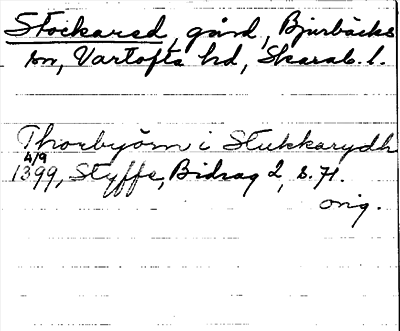 Stockared, gård, Bjurbäcks
sn, Vartofta hd, Skarab. l.
Thorbyörn i Stukkarydh
4/9
1399, Styffe, Bidrag 2, s. 71.
orig.